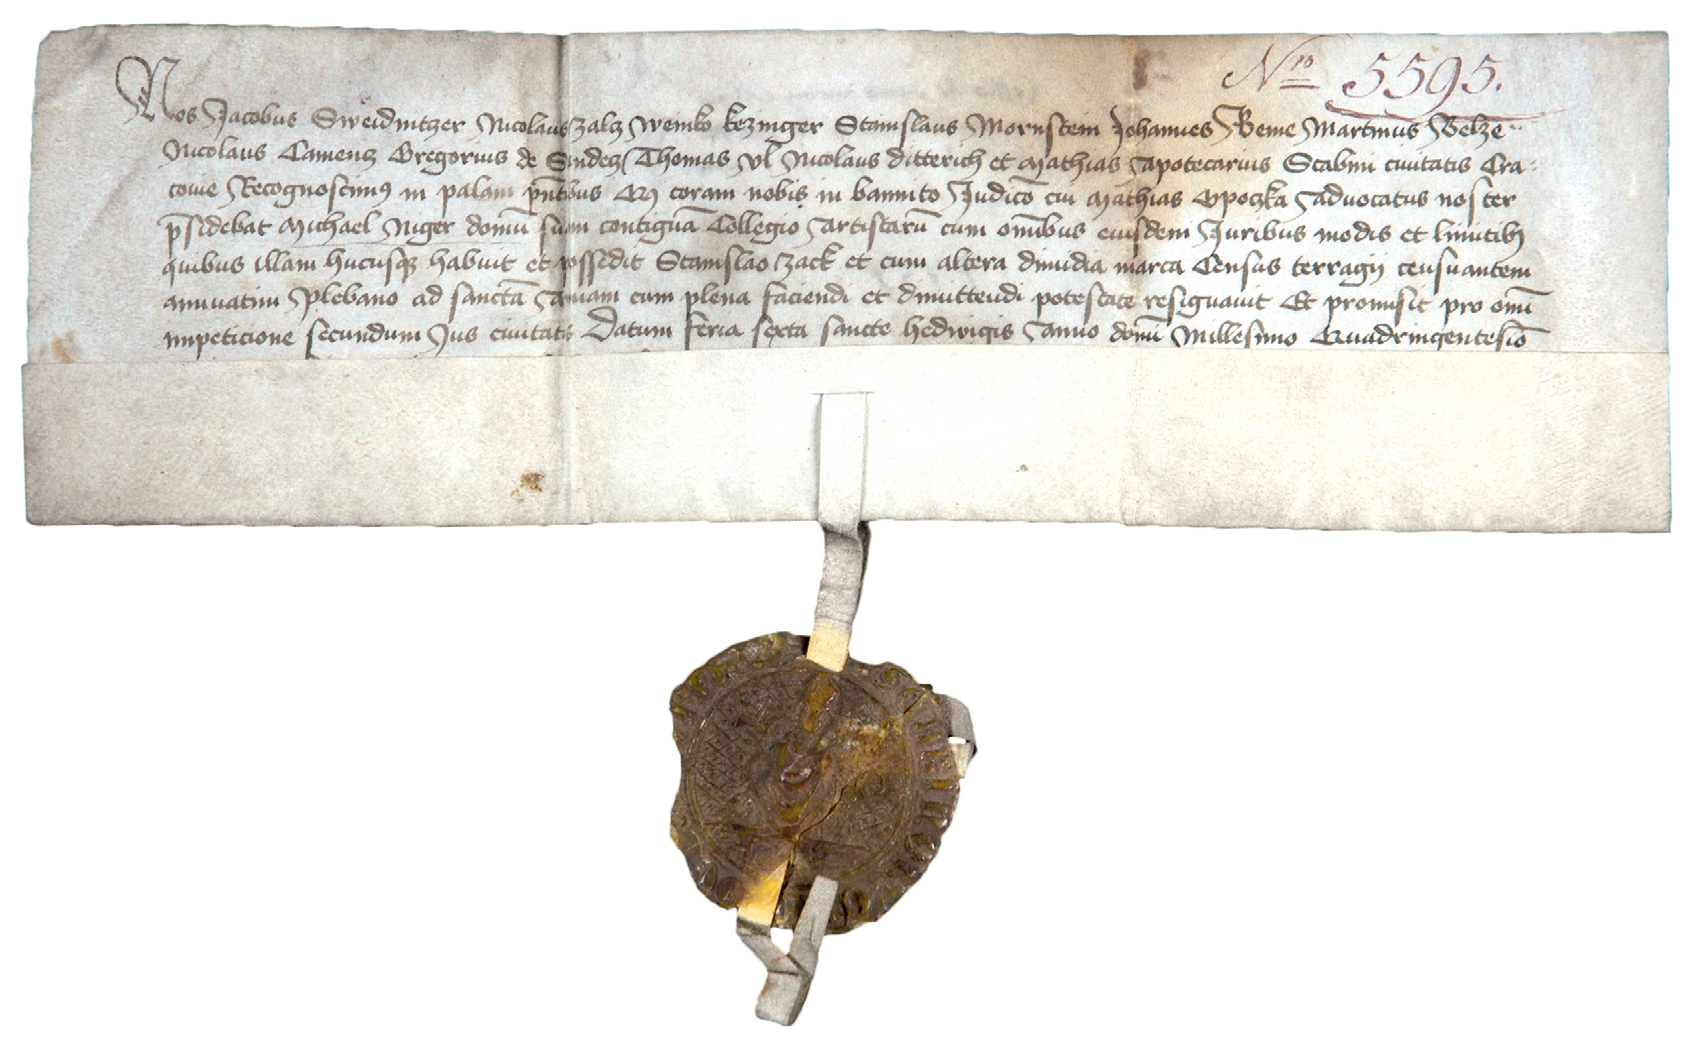 Nro 5595.
Nos Jacobus Sweidnitzer Nicolaus zalcz Weinko kezinger Stanislaus Mornstein Johannes Beme Martinus Belze
Nicolaus Camencz Gregorius de Sandecz Thomas vl Nicolaus ditterich et Mathias Apotecarius Scabini ciuitatis Cra-
couie Recognoscimus in palam pñtibus Q coram nobis in bannito Judicõ cui Mathias Opoczka Aduocatus noster
p̃sidebat Michael Niger domũ suam contiguã Collegio Artistarũ cum omĩbus eiusdem Juribus modis et limitibus
quibus illam hucusqʒ habuit et possedit Stanislao czack et cum altera dimidia marca Census terragij censuantem
annuatim Plebano ad sanctã Annam cum plena faciendi et dimittendi potestate resignauit Et promisit pro omĩ
impeticione secundum Jus ciuitatis Datum feria sexta sancte hedwigis Anno domĩ Millesimo Quadringentesiõ